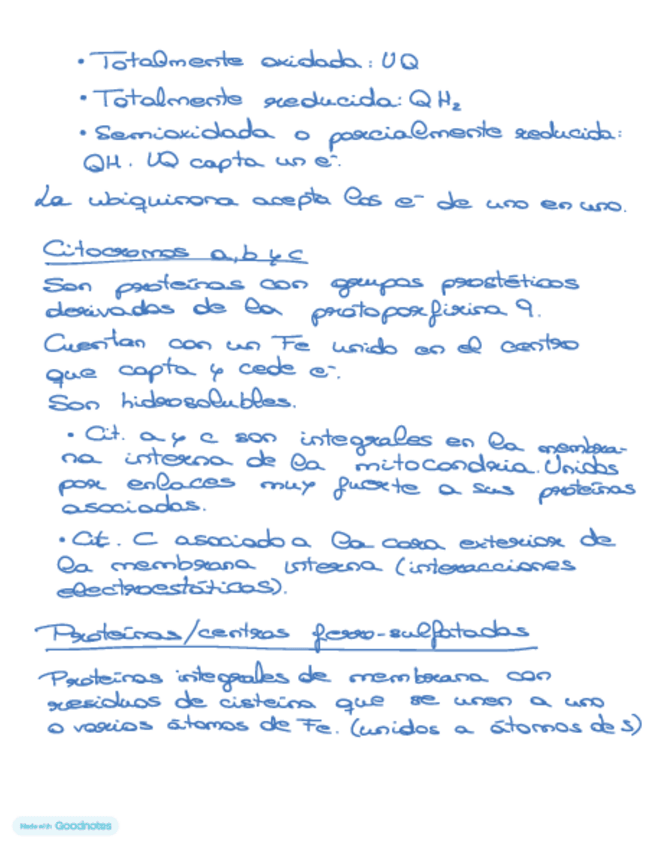 • Totalmente oxidada: UQ
• Totalmente reducida: QH₂
• Semioxidada o parcialmente reducida:
QH. UQ capta un e⁻.
La ubiquinona acepta los e⁻ de uno en uno.
Citocromos a, b y c
Son proteínas con grupos prostéticos
derivados de la protoporfirina 9.
Cuentan con un Fe unido en el centro
que capta y cede e⁻.
Son hidrosolubles.
• Cit. a y c son integrales en la membra-
na interna de la mitocondria. Unidos
por enlaces muy fuerte a sus proteínas
asociadas.
• Cit. C asociado a la cara exterior de
la membrana interna (interacciones
electroestáticas).
Proteínas/centros ferro-sulfatadas
Proteínas integrales de membrana con
residuos de cisteína que se unen a uno
o varios átomos de Fe. (unidos a átomos de S)
Made with Goodnotes